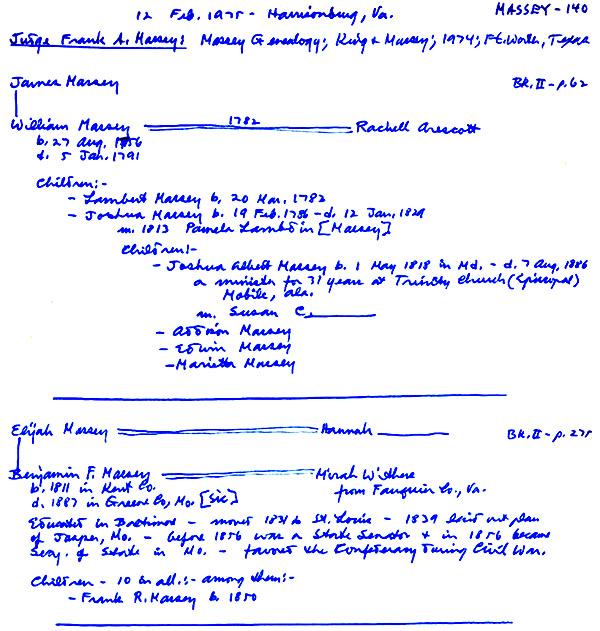 12 Feb. 1975 - Harrisonburg, Va.
MASSEY - 140
Judge Frank A. Massey: Massey Genealogy; King & Massey; 1974; Ft. Worth, Texas
James Massey
BK. II - p. 62
William Massey 1782 Rachell Arescott
b. 27 Aug. 1756
d. 5 Jan. 1791
Children:-
- Lambert Massey b. 20 Mar. 1782
- Joshua Massey b. 19 Feb. 1786 - d. 12 Jan. 1829
m. 1813 Pamela Lambdin [Massey]
Children:-
- Joshua Albert Massey b. 1 May 1818 in Md. - d. 7 Aug. 1886
a minister for 31 years at Trinity Church (Episcopal)
Mobile, Ala.
m. Susan C.
- Addison Massey
- Edwin Massey
- Marietta Massey
Elijah Massey Hannah
BK. II - p. 275
Benjamin F. Massey Mirah Withers
b. 1811 in Kent Co.
d. 1887 in Greene Co., Mo. [sic]
from Fauquier Co., Va.
Educated in Baltimore - moved 1831 to St. Louis - 1839 laid out plan
of Jasper, Mo. - before 1856 was a State Senator & in 1856 became
Secy. of State in Mo. - favored the Confederacy during Civil War.
Children - 10 in all.:- among them:-
- Frank R. Massey b. 1850